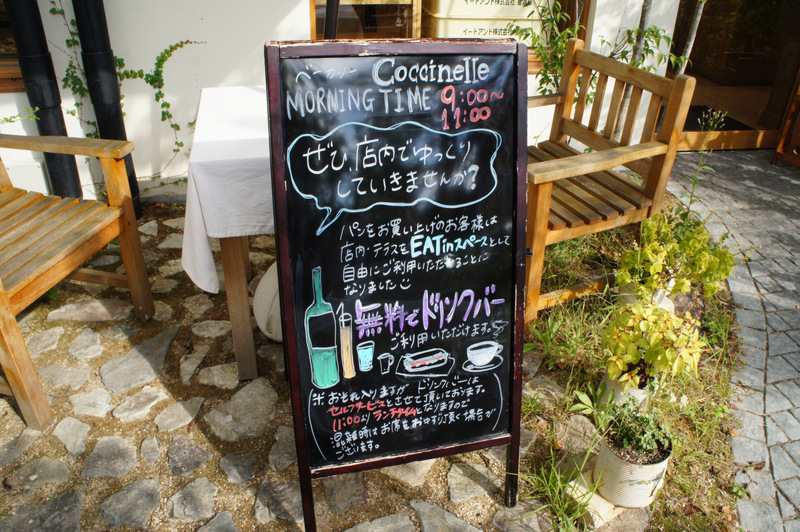 イートアンド株式会社
イートアンド株式会社
ベーカリー Coccinelle
MORNING TIME 9:00〜
11:00
ぜひ、店内でゆっくり
していきませんか?
パンをお買い上げのお客様は
店内・テラスをEAT inスペースとして
自由にご利用いただけることに
なりました
無料でドリンクバー
ご利用いただけます。
※おそれ入りますが、ドリンクバーは
セルフサービスとさせて頂いております。
11:00よりランチタイムとなりますので
混雑時はお席をおゆずり頂く場合が
ございます。